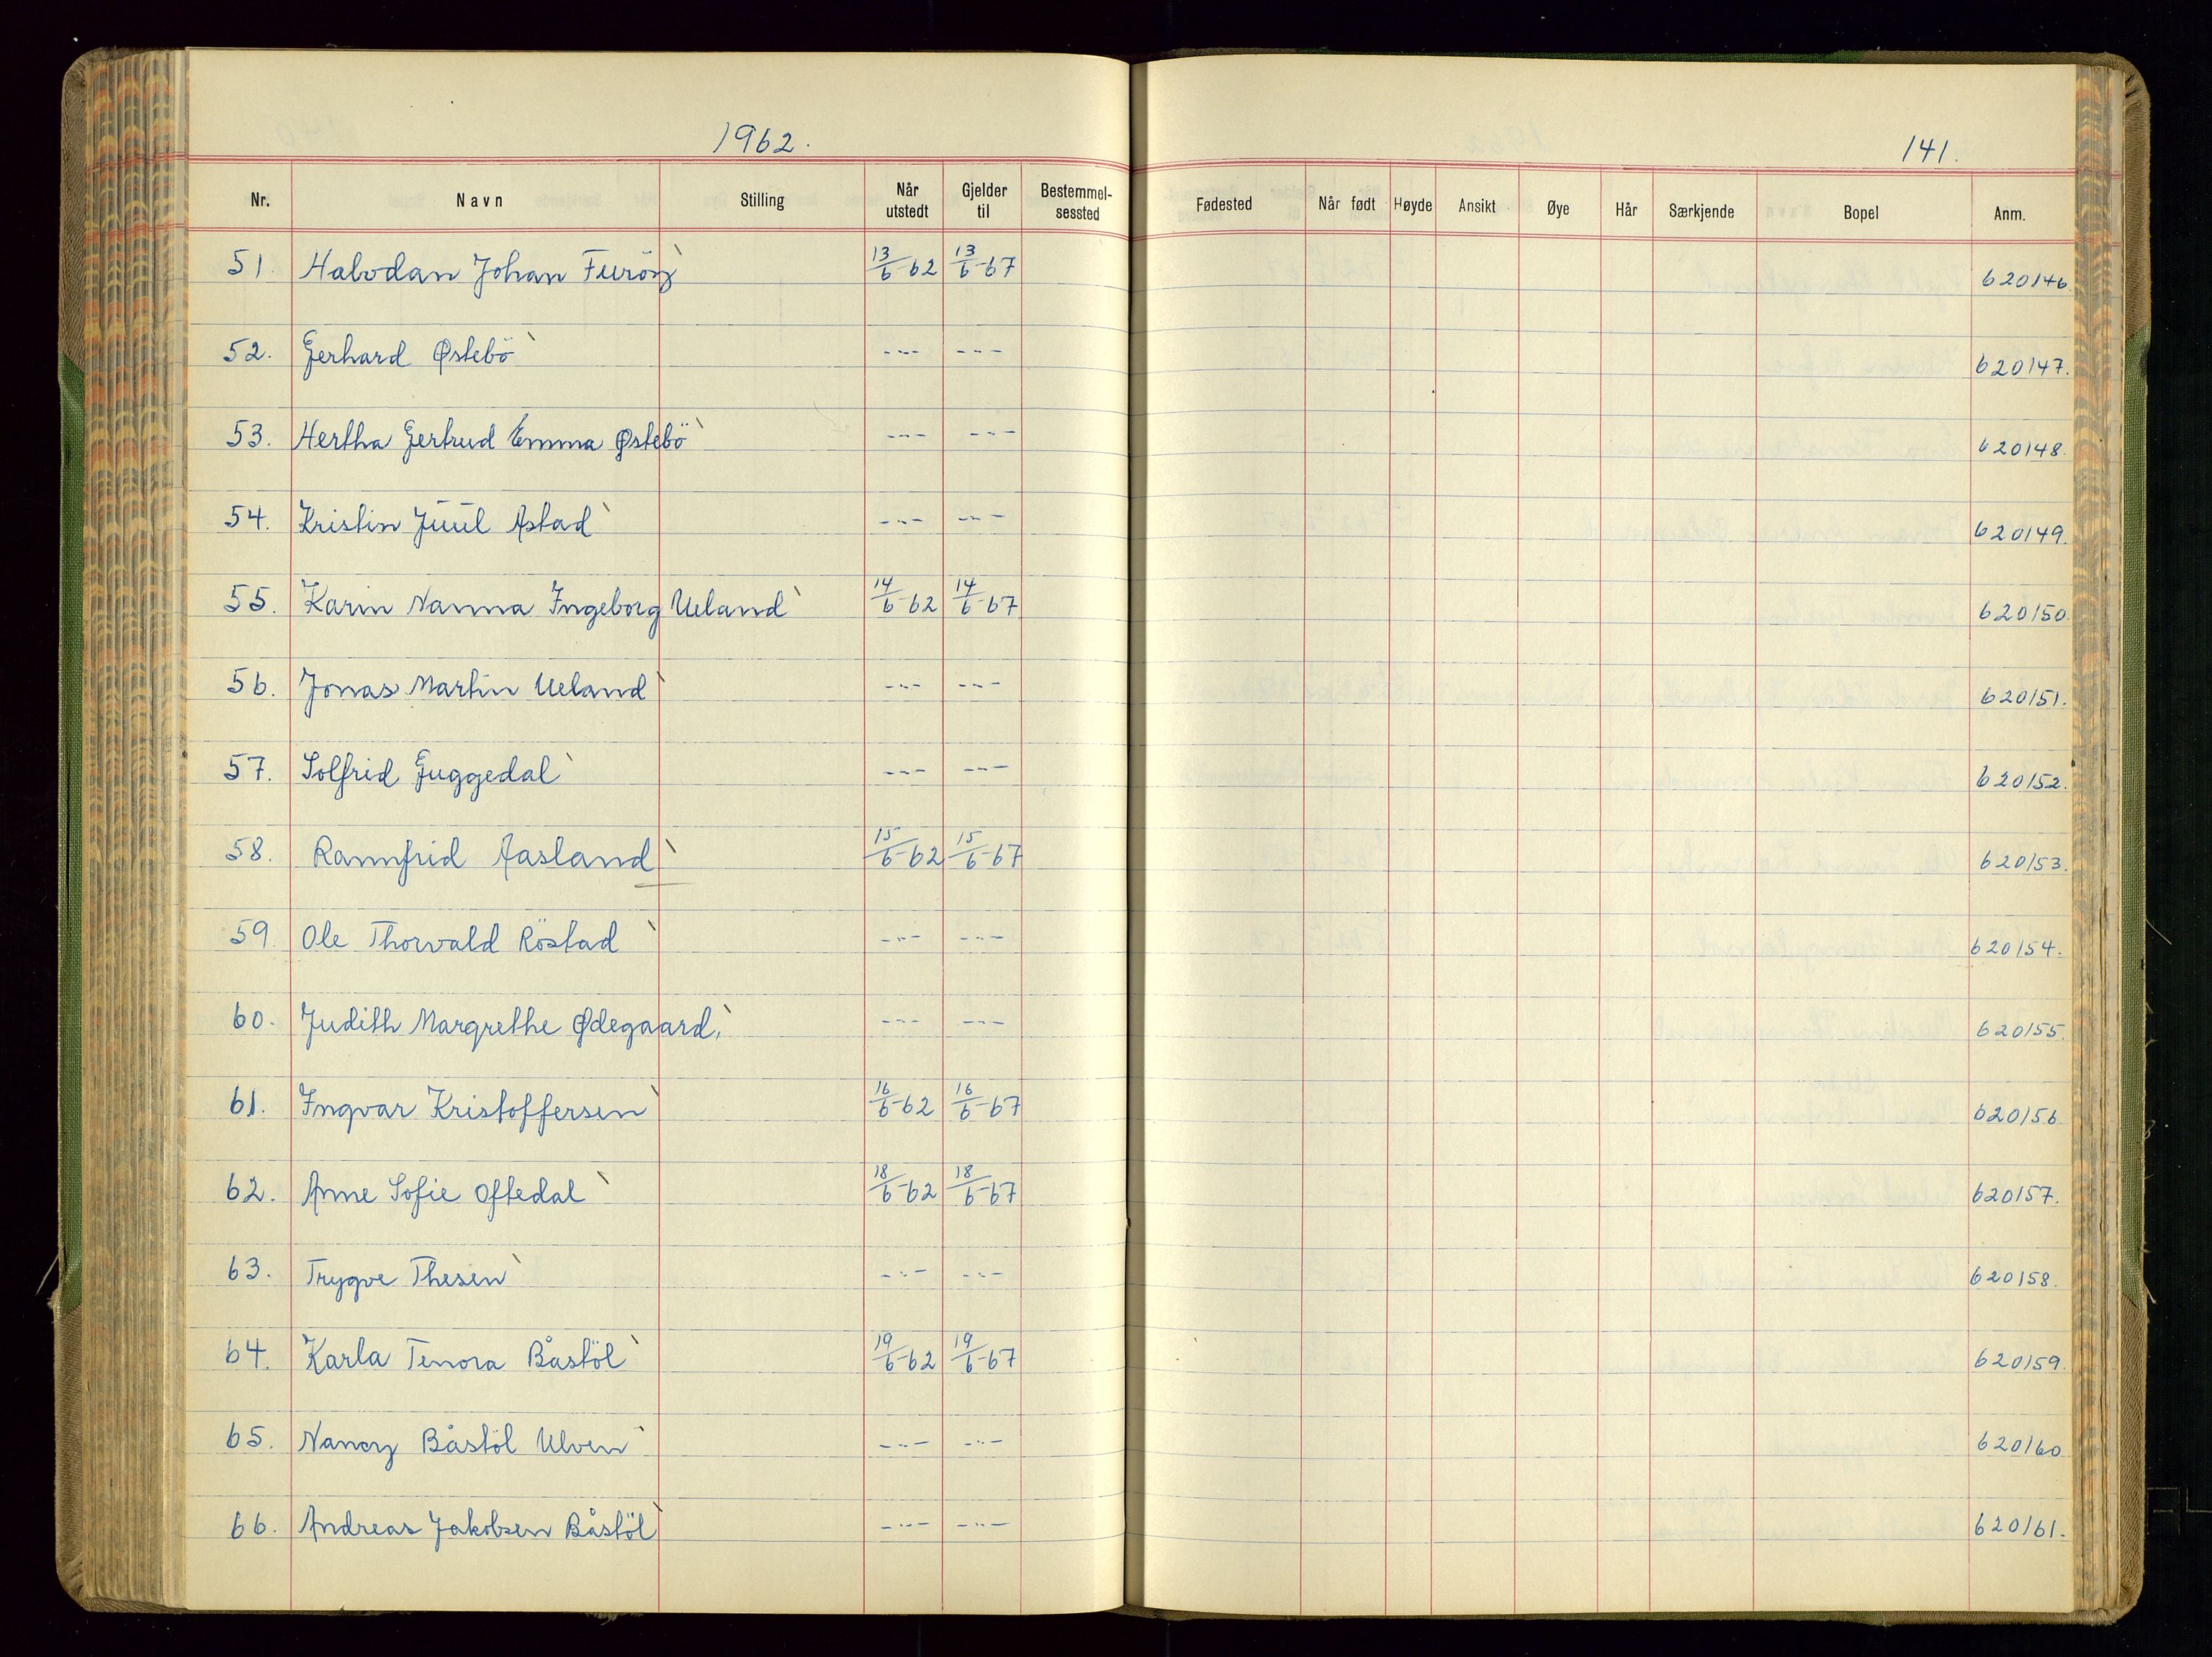 1962.
141.
Nr. Navn Stilling Når utstedt Gjelder til Bestemmel-sessted Fødested Når født Høyde Ansikt Øye Hår Særkjende Bopel Anm.
51. Halvdan Johan Furöy 13/6-62 13/6-67 620146
52. Gerhard Østebö --- --- 620147.
53. Hertha Gertrud Emma Østebö --- --- 620148
54. Kristin Juul Astad --- --- 620149.
55. Karin Nanna Ingeborg Ueland 14/6-62 14/6-67 620150
56. Jonas Martin Ueland --- --- 620151.
57. Solfrid Guggedal --- --- 620152.
58. Rannfrid Aasland 15/6-62 15/6-67 620153.
59. Ole Thorvald Röstad --- --- 620154.
60. Judith Margrethe Ødegaard. --- --- 620155.
61. Ingvar Kristoffersen 16/6-62 16/6-67 620156
62. Anne Sofie Oftedal 18/6-62 18/6-67 620157.
63. Trygve Thesen --- --- 620158.
64. Karla Tenora Båstöl 19/6-62 19/6-67 620159.
65. Nancy Båstöl Ulven --- --- 620160
66. Andreas Jakobsen Båstöl --- --- 620161.